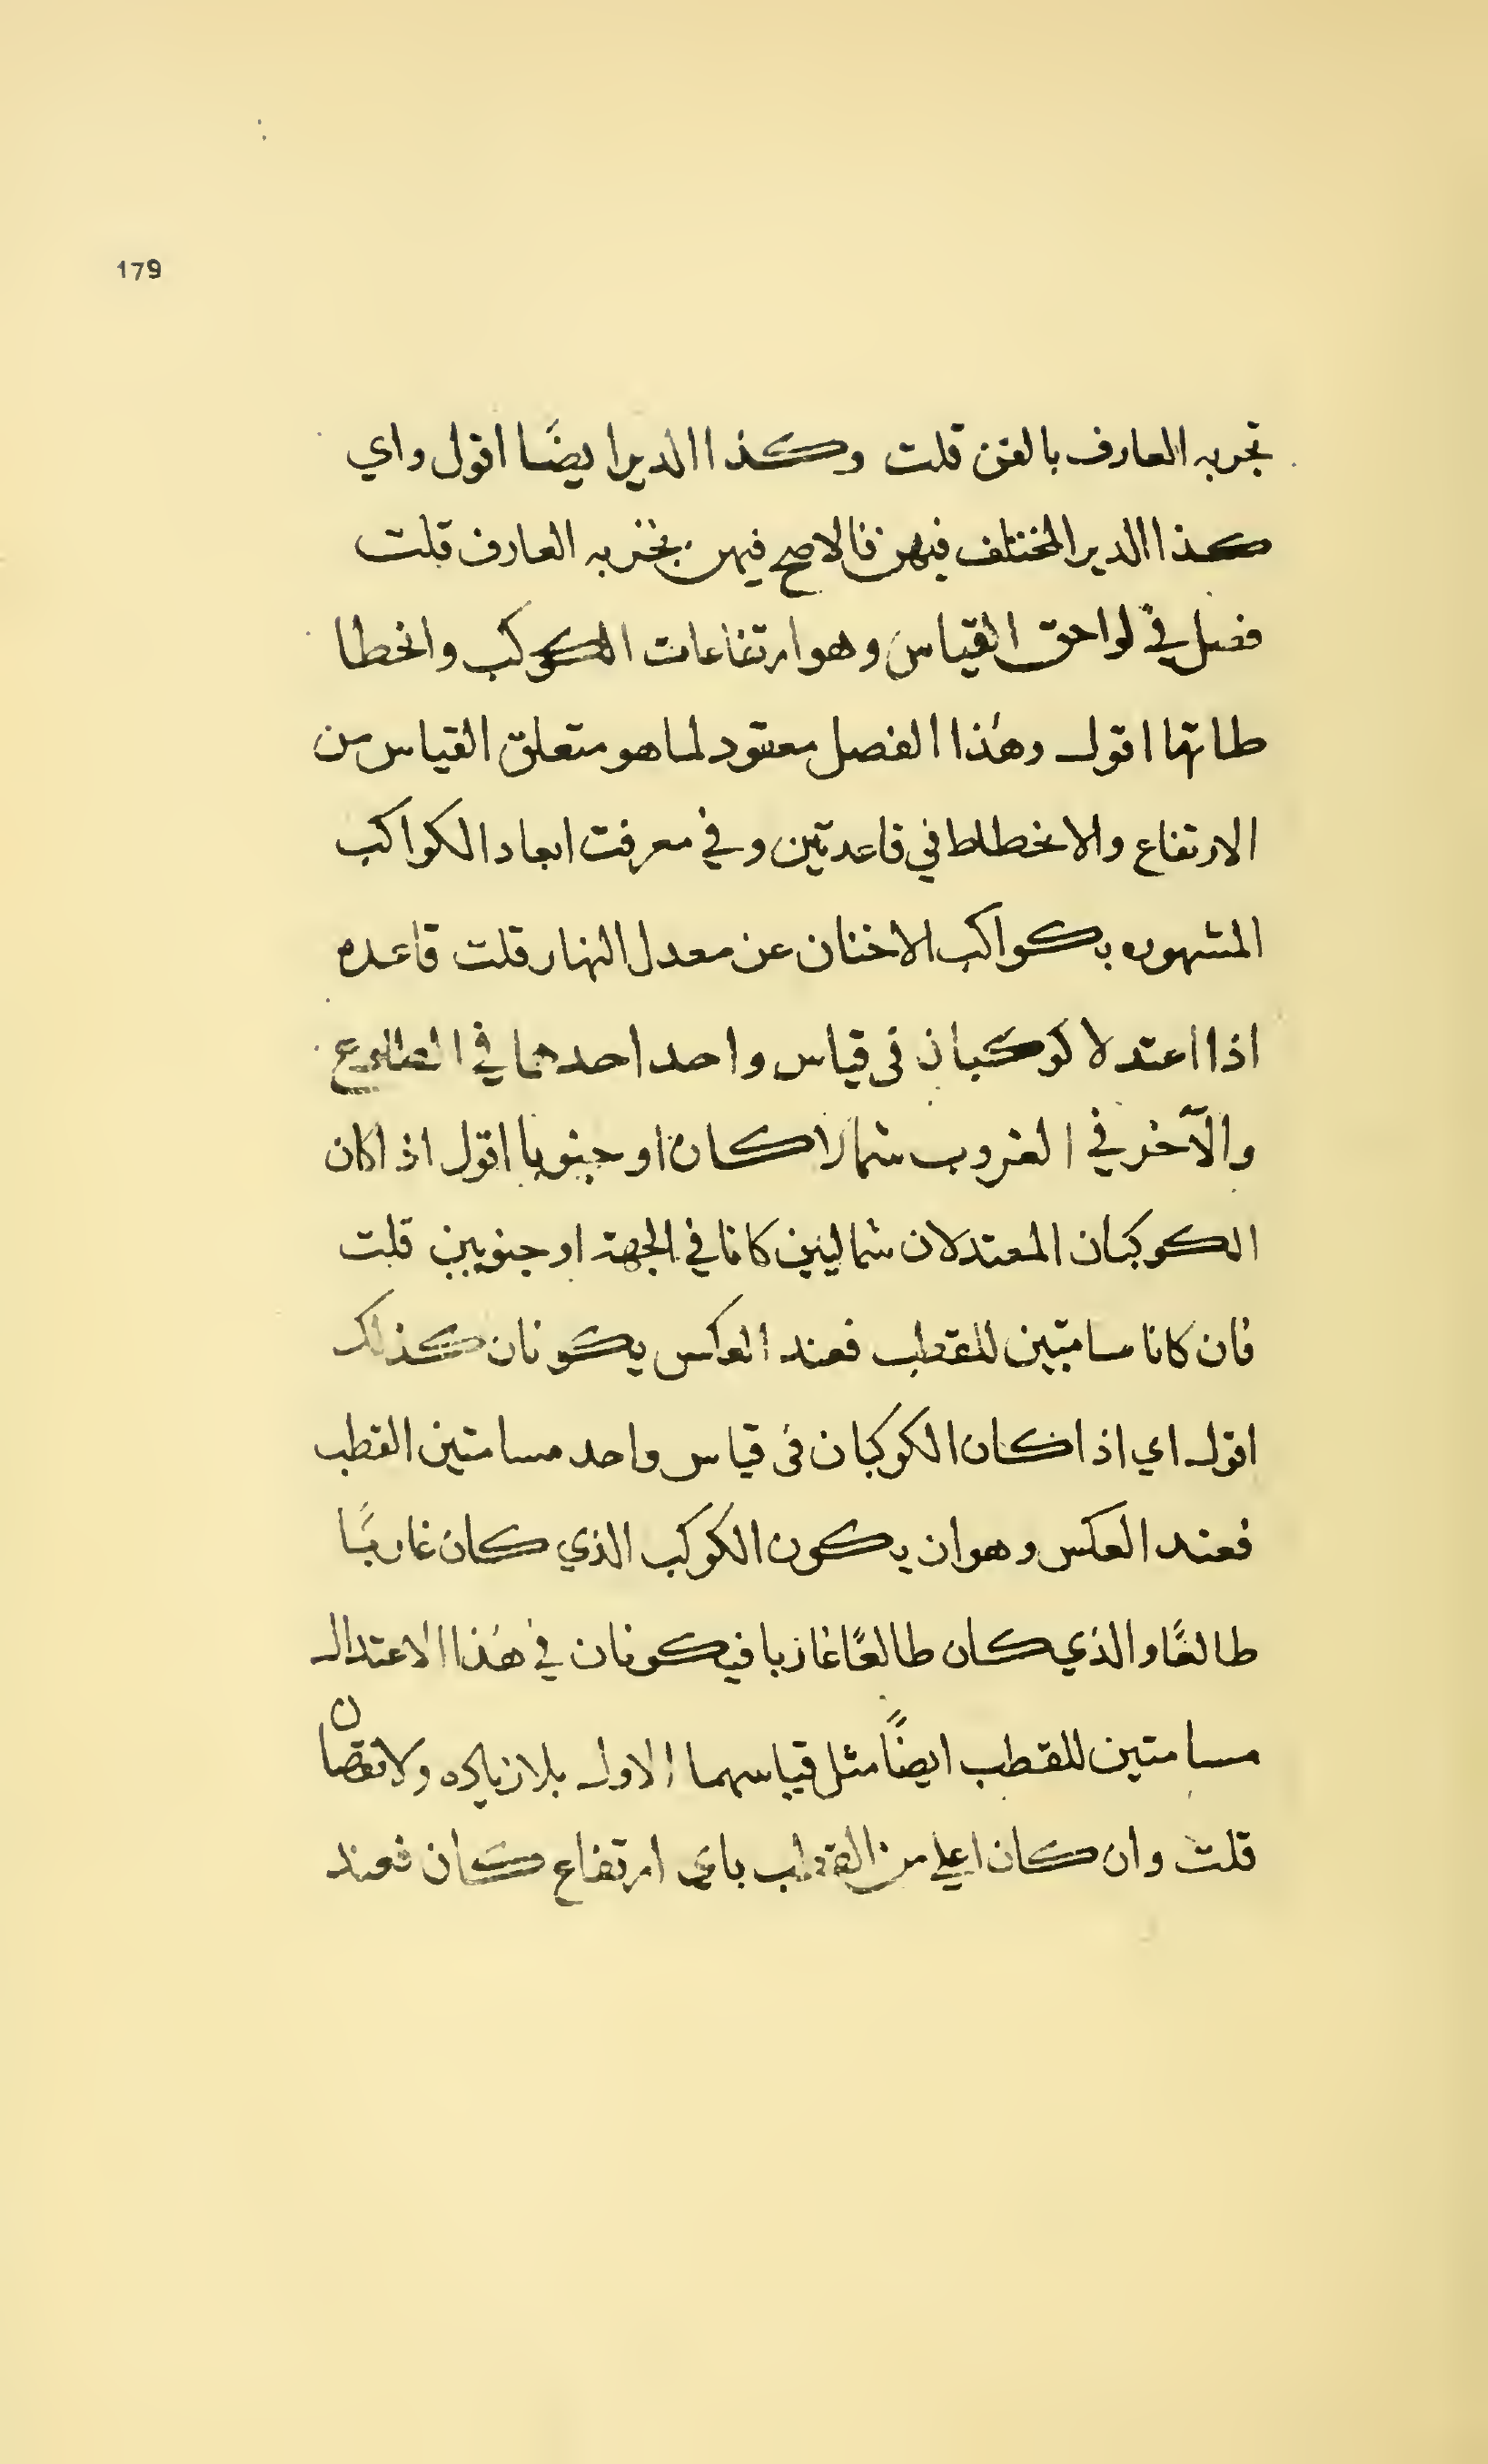 179
تجربه العارف بالفن قلت وكذا الدير ايضًا اقول واي
كذا الدير المختلف فيهن فالاصح فيهن بخبربه العارف قلت
فصل في لواحق القياس وهو ارتفاعات الكوكب وانخطا
طاتها اقول وهذا الفصل معقود لما هو متعلق القياس من
الارتفاع والانخطاط في قاعدتين وفي معرفت ابعاد الكواكب
المشهوره بكواكب الاخنان عن معدل النهار قلت قاعده
اذا اعتدلا كوكبان فى قياس واحد احدهما في الطلوع
والآخر في الغروب شمالا كان او جنوبا اقول اذا كان
الكوكبان المعتدلان شماليين كانا في الجهة او جنوبين قلت
فان كانا مسامتين للقطب فعند العكس يكونان كذلك
اقول اي اذا كان الكوكبان فى قياس واحد مسامتين القطب
فعند العكس وهو ان يكون الكوكب الذي كان غاربًا
طالعًا والذي كان طالعًا غاربا فيكونان في هذا الاعتدال
مسامتين للقطب ايضًا مثل قياسهما الاول بلا زياده ولا نقصان
قلت وان كان اعلي من القطب باى ارتفاع كان فعند